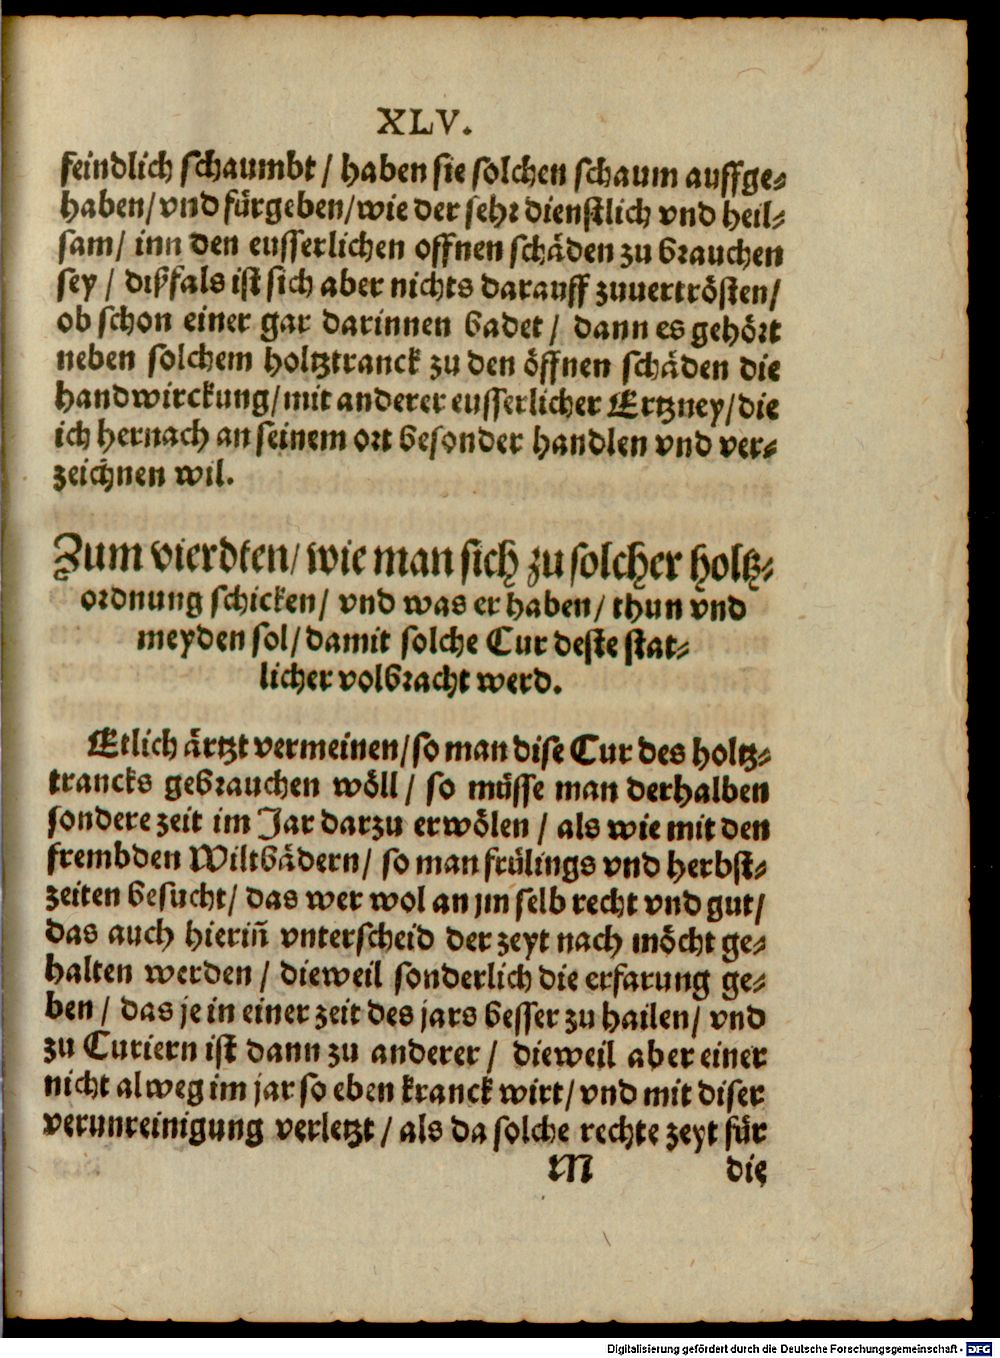 XLV.
feindlich schaumbt / haben sie solchen schaum auffge-
haben/ vnd fürgeben/ wie der sehr dienstlich vnd heil-
sam/ inn den eusserlichen offnen schäden zu brauchen
sey / dißfals ist sich aber nichts darauff zuuertrösten/
ob schon einer gar darinnen badet / dann es gehört
neben solchem holtztranck zu den öffnen schäden die
handwirckung/ mit anderer eusserlicher Ertzney/ die
ich hernach an seinem ort besonder handlen vnd ver-
zeichnen wil.
Zum vierdten/ wie man sich zu solcher holtz-
ordnung schicken/ vnd was er haben/ thun vnd
meyden sol/ damit solche Cur deste stat-
licher volbracht werd.
Etlich ärtzt vermeinen/ so man dise Cur des holtz-
trancks gebrauchen wöll / so müsse man derhalben
sondere zeit im Jar darzu erwölen / als wie mit den
frembden Wiltbädern/ so man frülings vnd herbst-
zeiten besucht/ das wer wol an jm selb recht vnd gut/
das auch hieriñ vnterscheid der zeyt nach möcht ge-
halten werden / dieweil sonderlich die erfarung ge-
ben / das je in einer zeit des jars besser zu hailen/ vnd
zu Curiern ist dann zu anderer / dieweil aber einer
nicht alweg im jar so eben kranck wirt/ vnd mit diser
verunreinigung verletzt / als da solche rechte zeyt für
M die
Digitalisierung gefördert durch die Deutsche Forschungsgemeinschaft - DFG